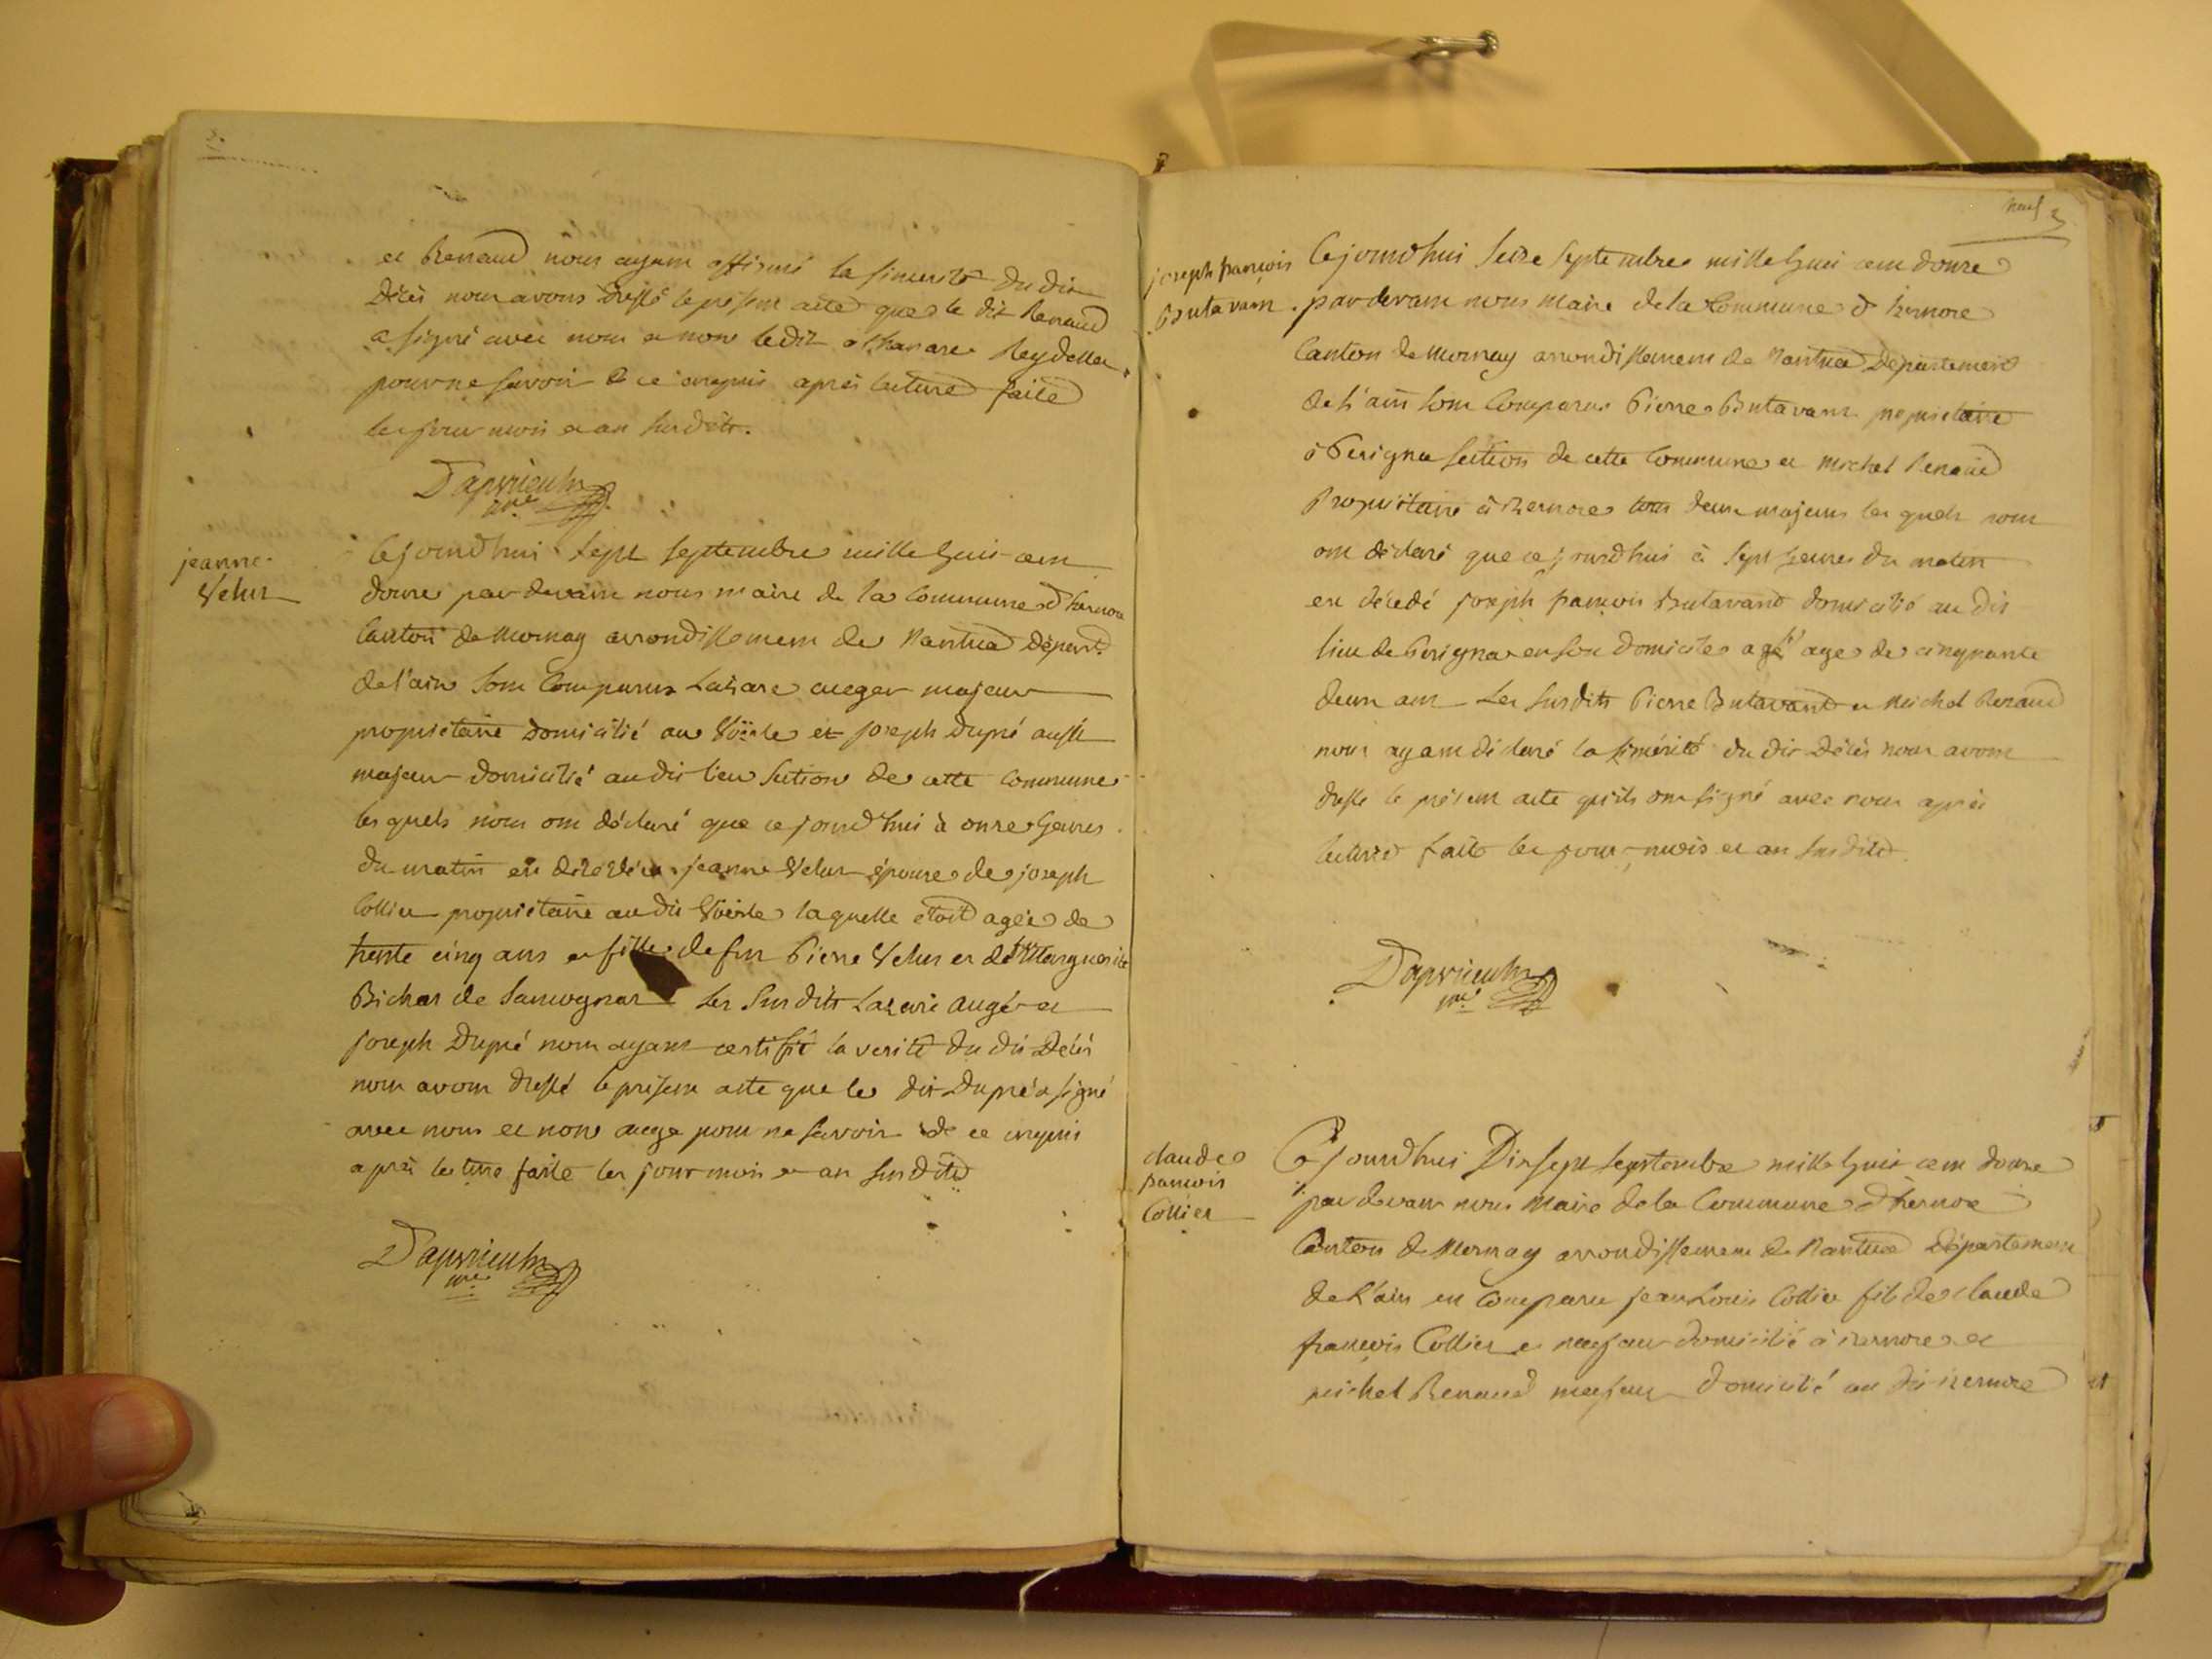 et Renaud nous ayant affirmé la sincerité du dit
décès nous avons dressé le présent acte que le dit Renaud
a signé avec nous et non ledit athanare Reydellet
pour ne savoir de ce enquis après lecture faite
les jour mois et an susdits.
Dapvrieulx
mre
jeanne
Velut
Cejourdhui sept septembre mille huit cent
douze par devant nous maire de la Commune d'hernore
Canton de Mornay arrondissement de Nantua départ.
de l'ain sont comparus Lazare auger majeur
propriétaire domicilié au Voërle et joseph Dupré aussi
majeur domicilié au dit lieu section de cette commune
les quels nous ont déclaré que ce jourdhui à onze heures
du matin est décédée jeanne Velut épouse de joseph
Collier propriétaire au dit Voërle laquelle etoit agée de
trente cinq ans et fille de feu Pierre Velut et de Marguerite
Bichat de Samognat Les Susdits Lazare Augé et
joseph Dupré nous ayant certifié la verité du dit Décès
nous avons dressé le présent acte que le dit Dupré a signé
avec nous et non auge pour ne savoir de ce enquis
après lecture faite les jour mois et an susdits
Dapvrieulx
mre
neuf
joseph françois
Butavant
Cejourdhui seize septembre mille huit cent douze
pardevant nous Maire de la Commune d'hernore
Canton de Mornay arrondissement de Nantua Département
de l'ain sont comparus Pierre Butavant propriétaire
à Perignat section de cette commune et michel Renaud
Propriétaire à izernore tous deux majeurs les quels nous
ont déclaré que ce jourdhui à sept heures du matin
est décédé joseph françois Butavand domicilié au dit
lieu de Perignat en son domicile agé age de cinquante
deux ans Les susdits Pierre Butavand et Michel Renaud
nous ayant déclaré la sincérité du dit Décès nous avons
dressé le présent acte qu'ils ont signé avec nous après
lecture faite les jour mois et an susdits
Dapvrieulx
mre
claude
francois
Collier
Cejourdhui Dix sept septembre mille huit cent douze
par devant nous Maire de la Commune d'hernore
Canton de Mornay arrondissement de Nantua Département
de l'ain est comparu jean Louis Collier fils de claude
françois Collier et majeur domicilié à izernore et
michel Renaud majeur domicilié au dit izernore